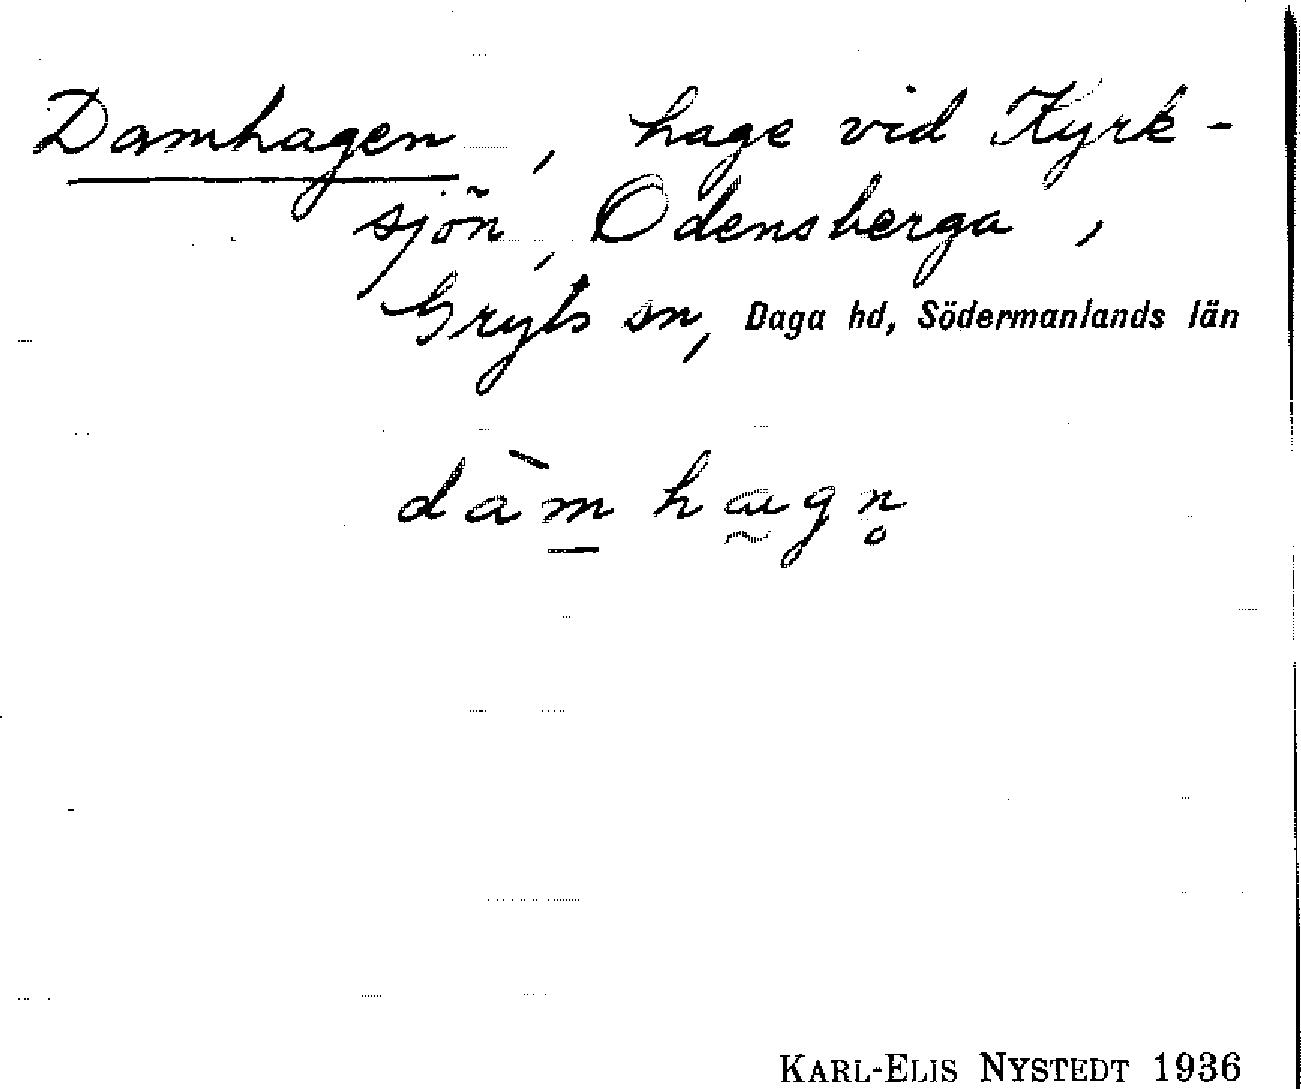 Damhagen, hage vid Kyrk-
sjön, Odensberga,
Gryts sn, Daga hd, Södermanlands län
dàm̲ha̰gn̥
KARL-ELIS NYSTEDT 1936